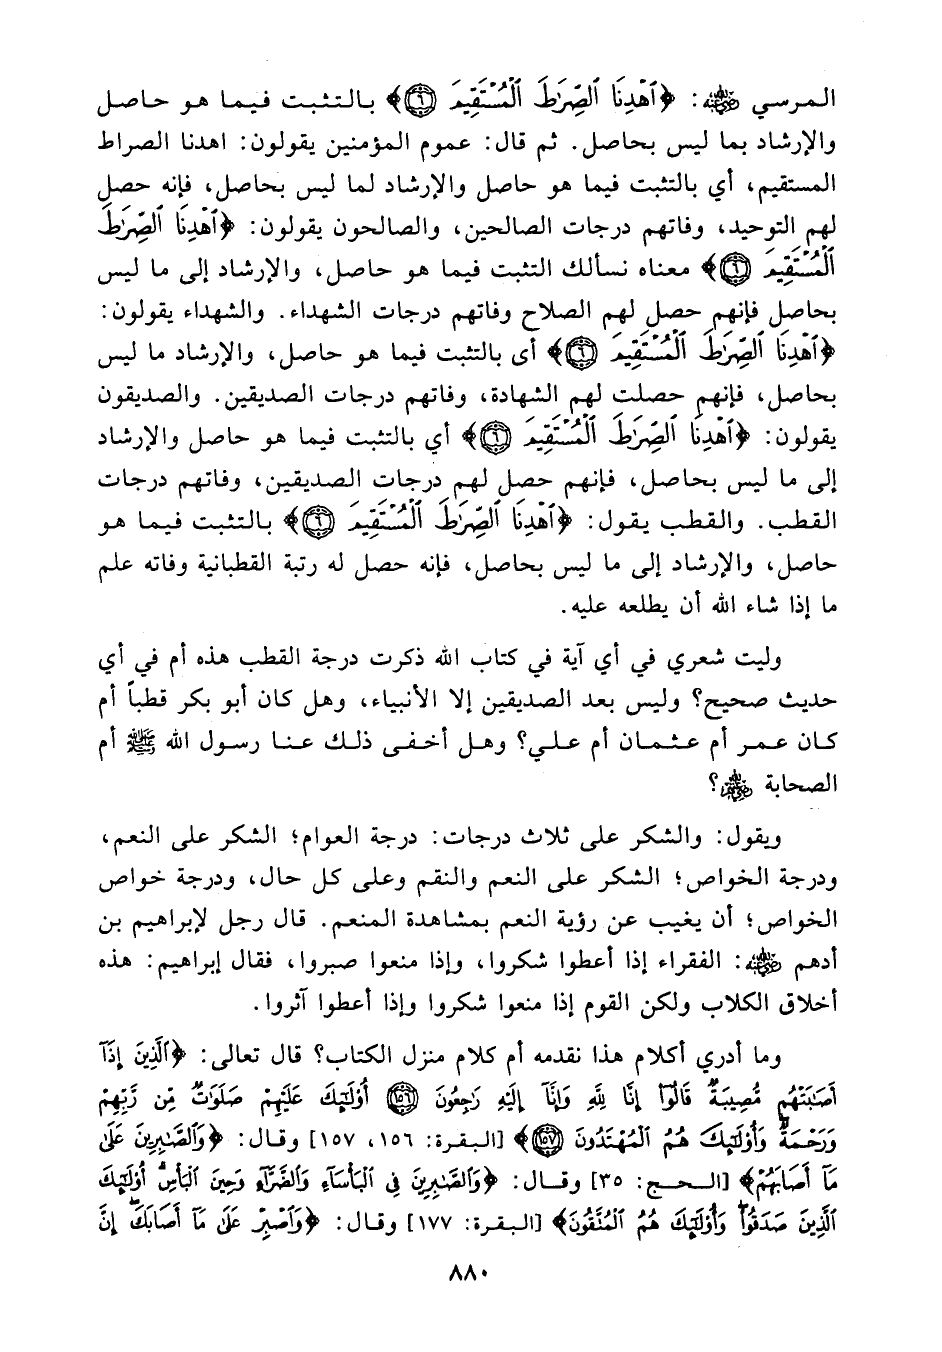 المرسي رضي الله عنه: ﴿ٱهْدِنَا ٱلصِّرَٰطَ ٱلْمُسْتَقِيمَ ٦﴾ بالتثبت فيما هو حاصل
والإرشاد بما ليس بحاصل. ثم قال: عموم المؤمنين يقولون: اهدنا الصراط
المستقيم، أي بالتثبت فيما هو حاصل والإرشاد لما ليس بحاصل، فإنه حصل
لهم التوحيد، وفاتهم درجات الصالحين، والصالحون يقولون: ﴿ٱهْدِنَا ٱلصِّرَٰطَ
ٱلْمُسْتَقِيمَ ٦﴾ معناه نسألك التثبت فيما هو حاصل، والإرشاد إلى ما ليس
بحاصل فإنهم حصل لهم الصلاح وفاتهم درجات الشهداء. والشهداء يقولون:
﴿ٱهْدِنَا ٱلصِّرَٰطَ ٱلْمُسْتَقِيمَ ٦﴾ أى بالتثبت فيما هو حاصل، والإرشاد ما ليس
بحاصل، فإنهم حصلت لهم الشهادة، وفاتهم درجات الصديقين. والصديقون
يقولون: ﴿ٱهْدِنَا ٱلصِّرَٰطَ ٱلْمُسْتَقِيمَ ٦﴾ أي بالتثبت فيما هو حاصل والإرشاد
إلى ما ليس بحاصل، فإنهم حصل لهم درجات الصديقين، وفاتهم درجات
القطب. والقطب يقول: ﴿ٱهْدِنَا ٱلصِّرَٰطَ ٱلْمُسْتَقِيمَ ٦﴾ بالتثبت فيما هو
حاصل، والإرشاد إلى ما ليس بحاصل، فإنه حصل له رتبة القطبانية وفاته علم
ما إذا شاء الله أن يطلعه عليه.
وليت شعري في أي آية في كتاب الله ذكرت درجة القطب هذه أم في أي
حديث صحيح؟ وليس بعد الصديقين إلا الأنبياء، وهل كان أبو بكر قطباً أم
كان عمر أم عثمان أم علي؟ وهل أخفى ذلك عنا رسول الله ﷺ أم
الصحابة رضي الله عنهم؟
ويقول: والشكر على ثلاث درجات: درجة العوام؛ الشكر على النعم،
ودرجة الخواص؛ الشكر على النعم والنقم وعلى كل حال، ودرجة خواص
الخواص؛ أن يغيب عن رؤية النعم بمشاهدة المنعم. قال رجل لإبراهيم بن
أدهم رضي الله عنه: الفقراء إذا أعطوا شكروا، وإذا منعوا صبروا، فقال إبراهيم: هذه
أخلاق الكلاب ولكن القوم إذا منعوا شكروا وإذا أعطوا آثروا.
وما أدري أكلام هذا نقدمه أم كلام منزل الكتاب؟ قال تعالى: ﴿ٱلَّذِينَ إِذَآ
أَصَٰبَتْهُم مُّصِيبَةٌ قَالُوٓا۟ إِنَّا لِلَّهِ وَإِنَّآ إِلَيْهِ رَٰجِعُونَ ١٥٦ أُو۟لَٰٓئِكَ عَلَيْهِمْ صَلَوَٰتٌ مِّن رَّبِّهِمْ
وَرَحْمَةٌ وَأُو۟لَٰٓئِكَ هُمُ ٱلْمُهْتَدُونَ ١٥٧﴾ [البقرة: ١٥٦، ١٥٧] وقال: ﴿وَٱلصَّٰبِرِينَ عَلَىٰ
مَآ أَصَابَهُمْ﴾ [الحج: ٣٥] وقال: ﴿وَٱلصَّٰبِرِينَ فِى ٱلْبَأْسَآءِ وَٱلضَّرَّآءِ وَحِينَ ٱلْبَأْسِ أُو۟لَٰٓئِكَ
ٱلَّذِينَ صَدَقُوا۟ وَأُو۟لَٰٓئِكَ هُمُ ٱلْمُتَّقُونَ﴾ [البقرة: ١٧٧] وقال: ﴿وَٱصْبِرْ عَلَىٰ مَآ أَصَابَكَ إِنَّ
٨٨٠